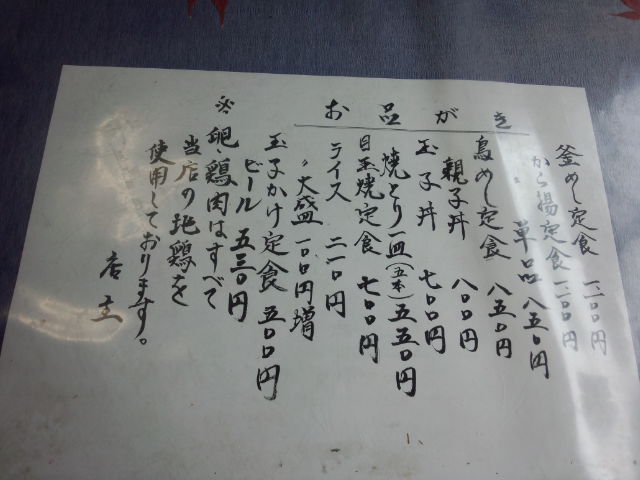 お品がき
釜めし定食
から揚定食
〃 単品 八五〇円
鳥めし定食 八五〇円
親子丼 八〇〇円
玉子丼 七〇〇円
焼とり一皿(五本) 五五〇円
目玉焼定食 七〇〇円
ライス 二一〇円
〃 大盛 一〇〇円増
玉子かけ定食 五〇〇円
ビール 五三〇円
※ 卵・鶏肉はすべて
当店の地鶏を
使用しております。
店主